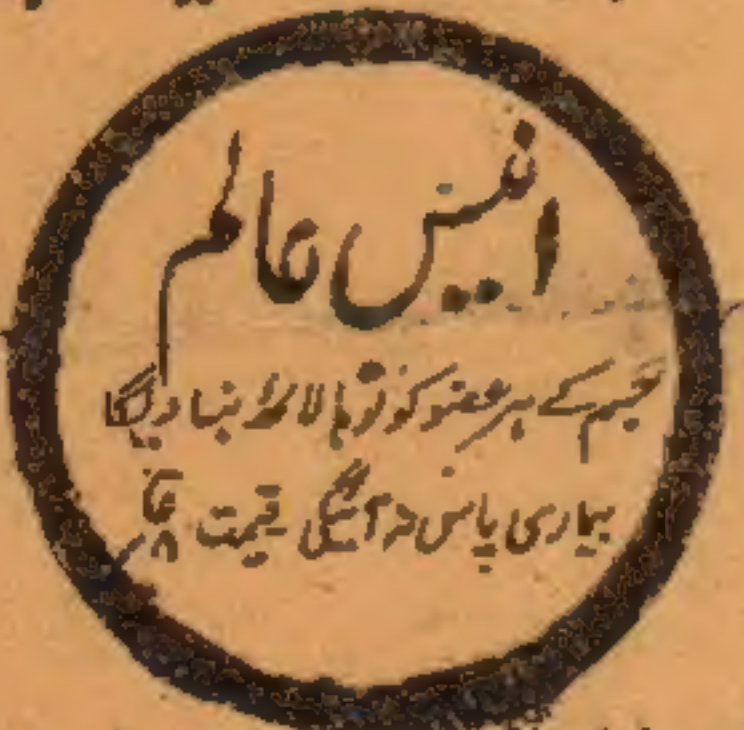 انیس عالم
جسم کے ہر عضو کو توانا بنا دیگا
بیماری پاس نہ آئیگی قیمت